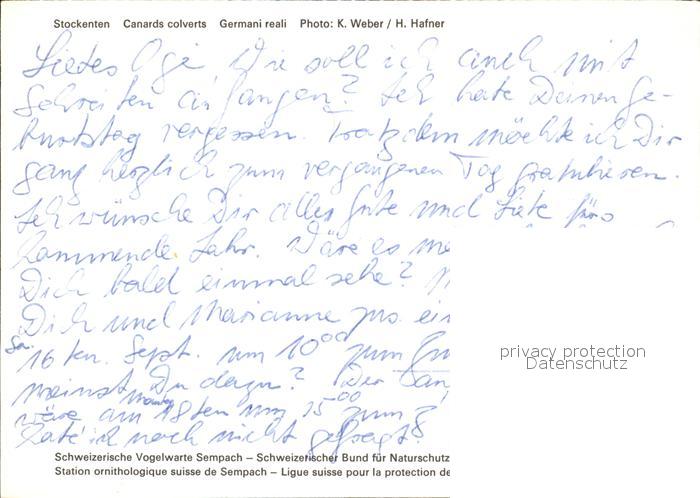 Stockenten Canards colverts Germani reali Photo: K. Weber / H. Hafner
Liebes Ogi, Wie soll ich auch mit
Schreiben anfangen? Ich habe Deinen Ge-
burtstag vergessen. Trotzdem möchte ich Dir
ganz herzlich zum vergangenen Tag gratulieren.
Ich wünsche Dir alles Gute und Liebe fürs
kommende Jahr. Wäre es
Dich bald einmal sehe?
Dich und Marianne zus.
Sa.
16ten. Sept. um 10⁰⁰ zum
meinst Du dazu? Der
Montag
wäre am 18ten um 15⁰⁰ zum
habe ich noch nicht gefragt?
privacy protection
Datenschutz
Schweizerische Vogelwarte Sempach – Schweizerischer Bund für Naturschutz
Station ornithologique suisse de Sempach – Ligue suisse pour la protection de